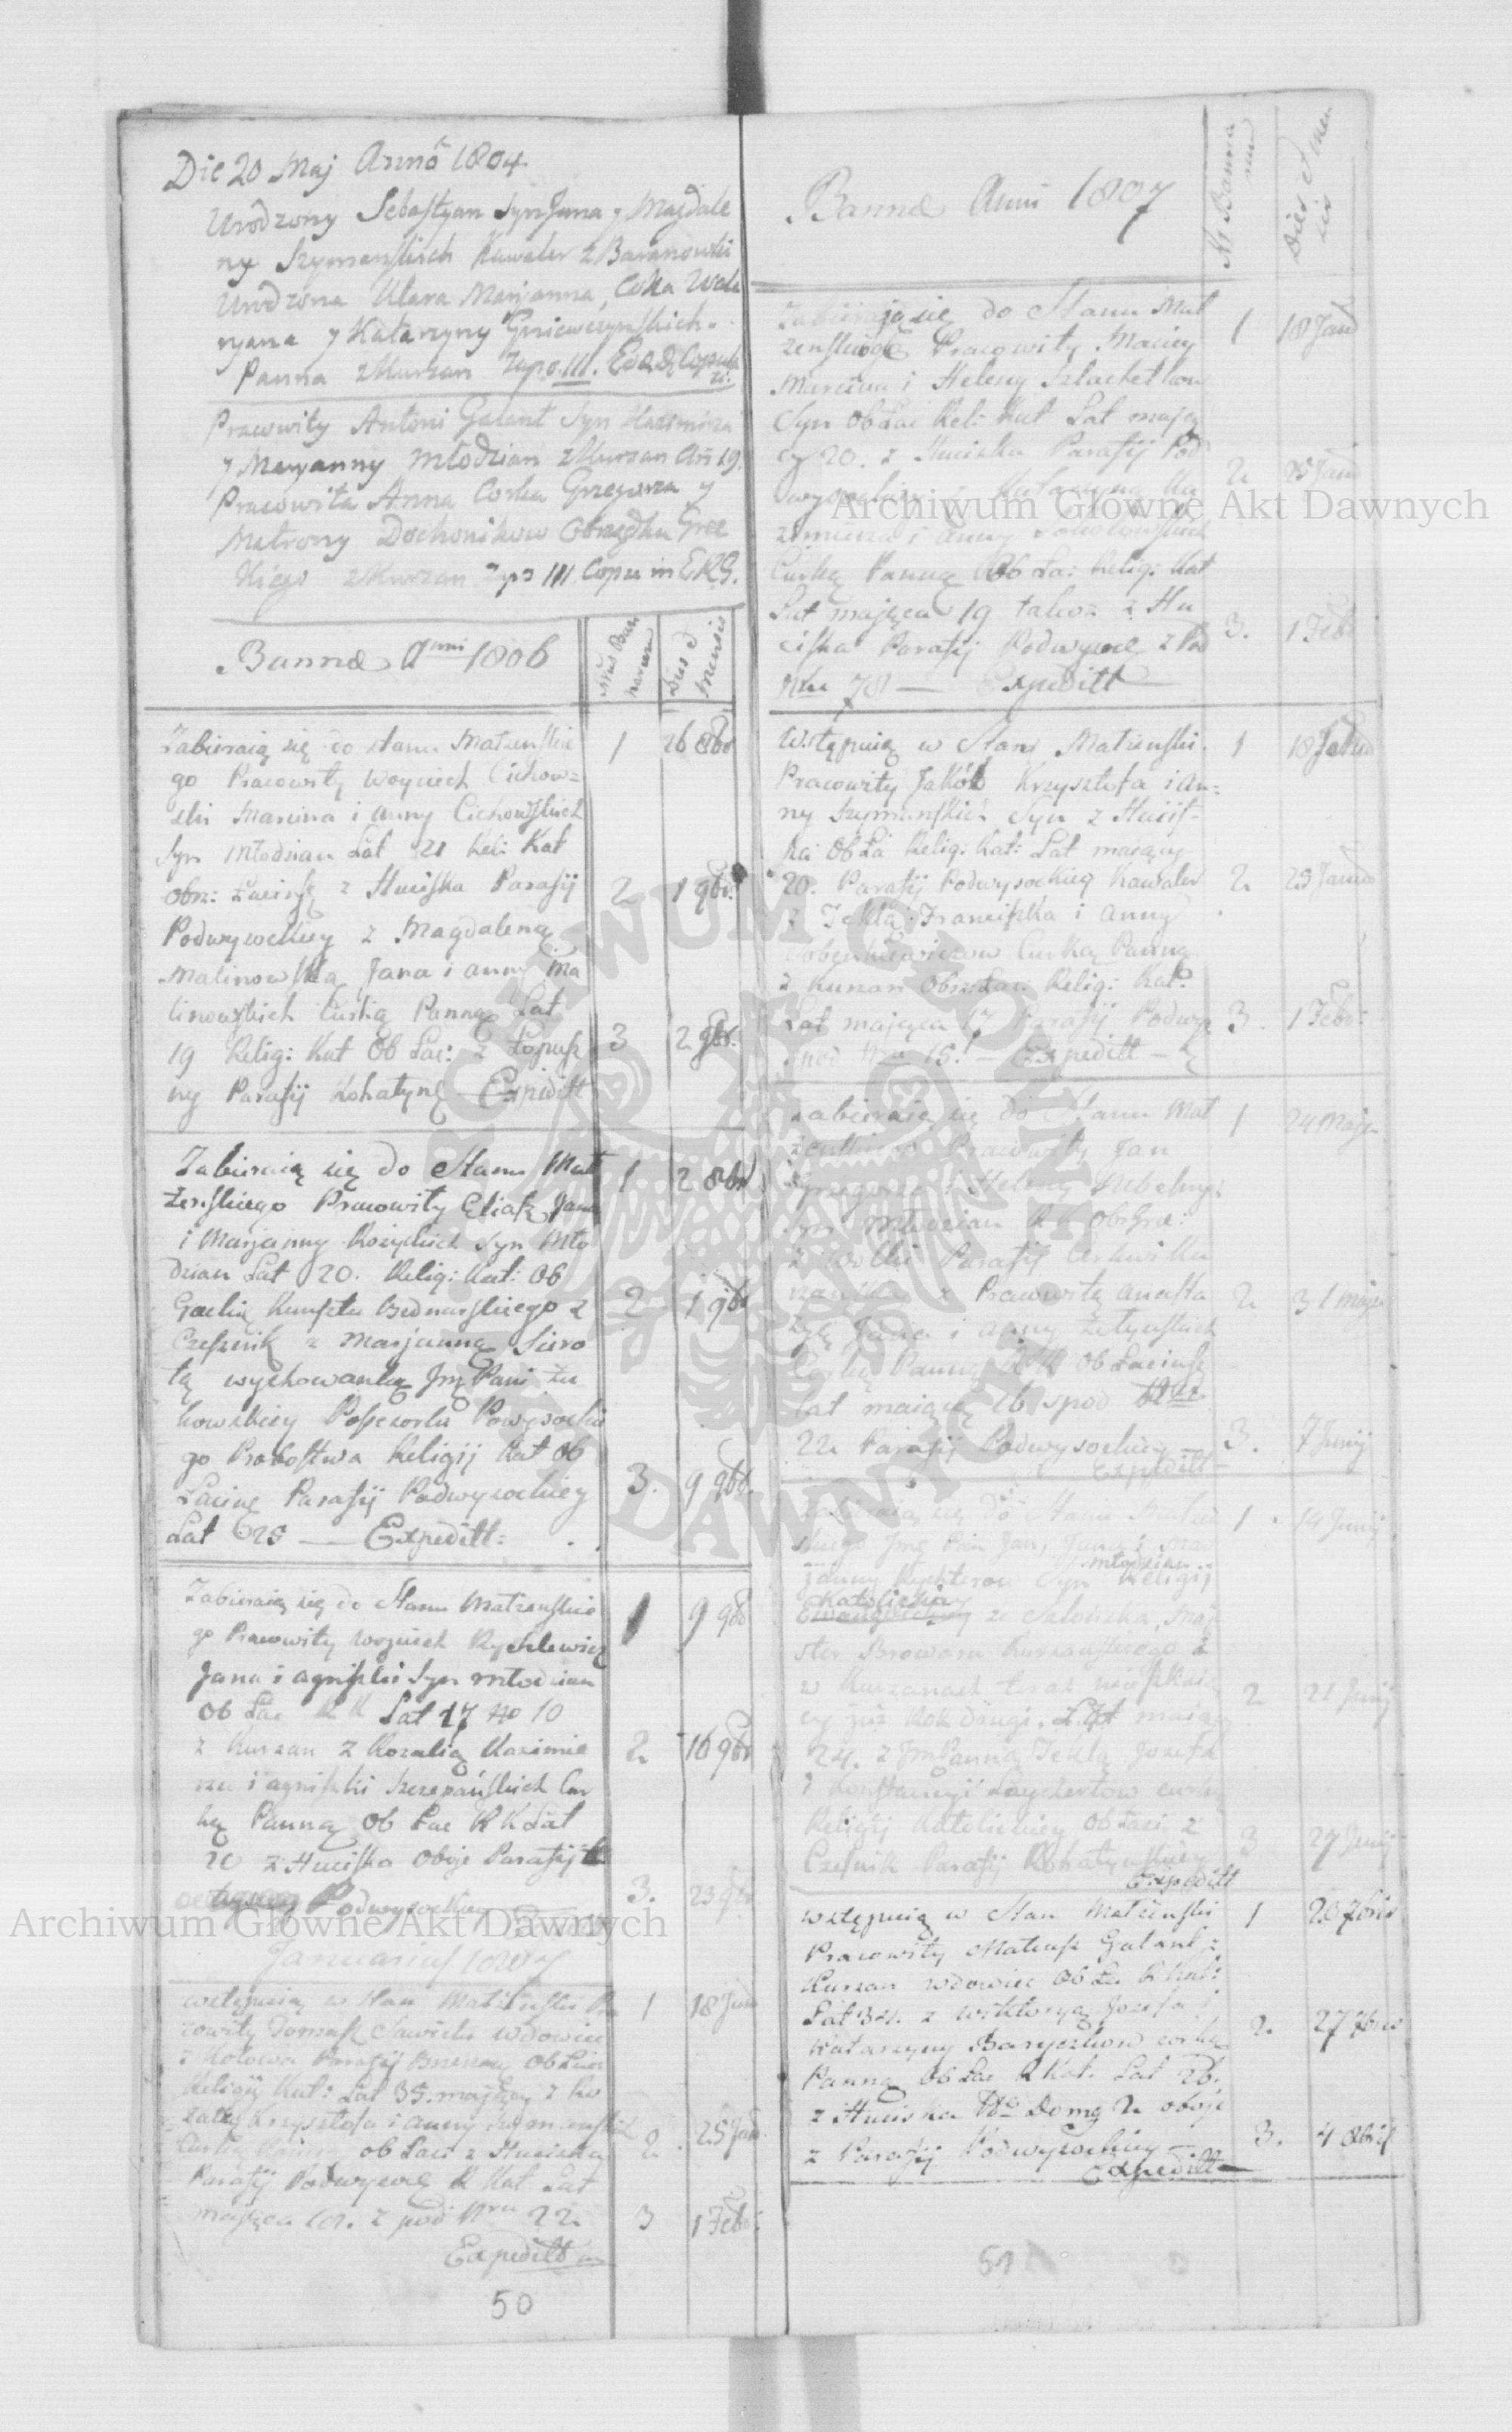 Die 20 Maj Anno 1804.
Urodzony Sebastyan Syn Jana y Magdale
ny Szymanskich Kawaler z Baranowki
Urodzona Klara Marjanna, Corka Wale
ryana y Katarzyny Gniewczynskich.
Panna z Kurzan zapo. III.
Pracowity Antoni Galant Syn Kazimirza
y Maryanny Młodzian z Kurzan An 19.
Pracowita Anna Corka Grzegorza y
Matrony Dochonikow Obrządku Grec
kiego z Kurzan zapo III Copu in
Bannae Anni 1806
Nrus Ban
narum
Dies et
mensis
Zabieraią się do stanu Małzenskie
go Pracowity Woyciech Cichow=
ski Marcina i Anny Cichowskich
Syn Młodzian Lat 21 Rel: Kat
Obrz: Łacinsk z Huciska Parafij
Podwysockiey z Magdaleną
Malinowską Jana i Anny Ma
linowskich Curką Panną Lat
19 Relig: Kat Ob Łac: z Łopusz
ny Parafij Rohatynę Expeditt
1 26 8br
2 1 9br.
3 2 9br.
Zabieraią się do Stanu Mał
żenskiego Pracowity Eliasz Jana
i Marjanny Kozyckich Syn Mło
dzian Lat 20. Relig: Kat: Ob
Kunsztu Bednarskiego z
Czesnik z Marjanną Siero
tą wychowanką Jmę Pani Żu
kowskiey Possesorki Podwysockie
go Probostwa Religij Kat Ob
Łacinę Parafij Podwysockiey
Lat 23 — Expeditt:
1 2 8br
2 1 9br
3. 9 9br.
Zabieraią się do Stanu Małzenskie
go Pracowity Woyciech Ryszlewicz
Jana i Agniszki Syn młodzian
Ob Łac R K Lat 17 No 10
z Kurzan z Rozalią Kazimie
rza i Agniszki Szczepańskich Cur
ką Panną Ob Łac R K Lat
20 z Huciska oboje Parafij
Podwysockiey
1 9 9br
2. 16 9br
3. 23 9br.
Januarius 1807
wstępuią w stan Małżenski Pra
cowity Tomasz Sawicki wdowiec
z Kotowa Parafij Brzezany Ob Łacin
Religij Kat: Lat 35. mający z Ro
zalią Krzysztofa i Anny Szymanskich
Curką Panną ob Łaci z Huciska
Parafij Podwysocę R Kat Lat
mająca z pod Nru 22
Expeditt
1 18 Jan
2. 25 Jan
3 1 Febr.
50
Bannae Anni 1807
Nr Banna
rum
Dies et men
sis
Zabierają się do Stanu Mał
zenskiego Pracowity Maciey
Marcina i Heleny Szlachetkow
Syn Ob Łac Rel: Kat Lat mają
cy 20. z Huciska Parafij Pod
wysockiey z Katarzyną Ka
zimirza i Anny Sokołowskich
Curką Panną Ob Ła: Relig: Kat
Lat mająca 19 takoż z Hu
ciska Parafij Podwysocę z Pod
Nru 78 — Expeditt —
1 18 Jan
2. 25 Jan
3. 1 Febr
Wstępuią w Stan Małzenski.
Pracowity Jakób Krzysztofa i An=
ny Szymanskich Syn z Hucis-
ka Ob Ła Relig: Kat: Lat maiący
20. Parafij Podwysockiey Kawaler
z Teklą Franciszka i Anny
Curką Panną
z Kurzan Obrz Łac. Relig: Kat.
Lat mająca 17 Parafij Podwy
spod Nru 15. — Expeditt —
1 18
2. 25 Janu
3. 1 Febr:
Zabieraią się do Stanu Mał
żenskiego Pracowity Jan
Grzegorza i Heleny
Syn Młodzian R K Obr Grec:
z Wolki Parafij Cerkwi Ku
rzańska z Pracowitą Anasta
zyą Jana i Anny
Curką Panną R K Ob Łacinsk
lat maiącą 16 spod Nru.
22 Parafij Podwysockiey —
Expeditt —
1 24 Maja
2. 31 Maja
3. 7 Junij
Zabieraią się do Stanu Małzen
skiego Jmę Pan Jan, Jana i Mar
janny Rychterow Syn młodzian Religij
Katolickiey
Ewangelickiey ze Maj
ster Browaru Kurzanskiego z
w Kurzanach teraz mieszkaią
cy już Rok drugi. Lat maiący
24. z Jm Panną Teklą Jozefa
i Konstancyi curką
Religij Katolickiey Ob Łaci z
Czesnik Parafij Rohatynskiey
Expeditt
1 14 Junij
2 21 Junij
3 27 Junij
wstępuią w Stan Małżenski
Pracowity Mateusz Galant z
Kurzan wdowiec Ob Ła R Kat:
Lat 34. z Wiktoryą Jozefa i
Katarzyny Baryczkow corką
Panną Ob Łac R Kat. Lat 26.
z Huciska No Domę 2 oboje
z Parafij Podwysockiey —
Expeditt —
1 20 7bris
2. 27 7bris
3. 4 8bris
51
Archiwum Główne Akt Dawnych
Archiwum Główne Akt Dawnych
ARCHIWUM GŁÓWNE AKT DAWNYCH